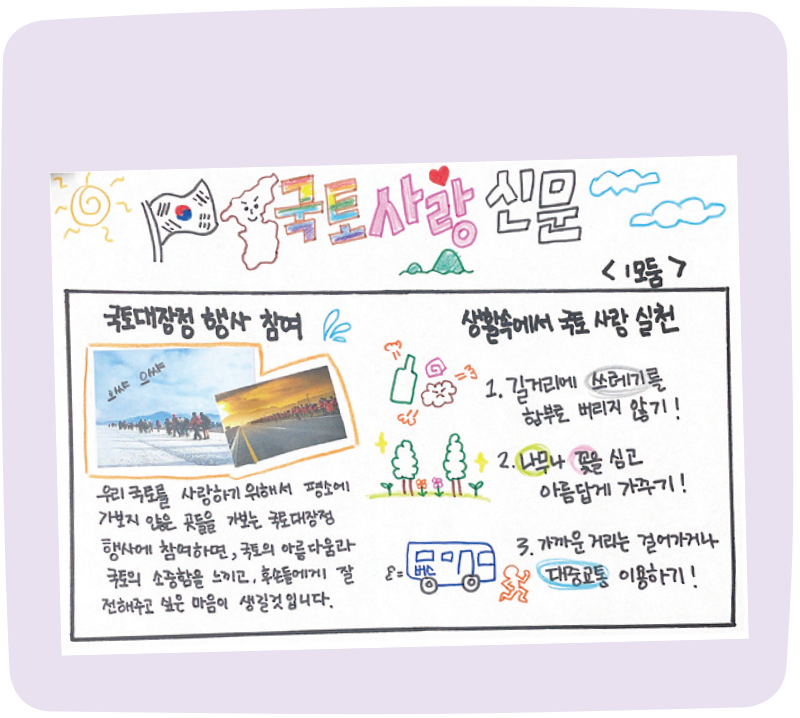 국토 사랑 신문
<1모둠>
국토대장정 행사 참여
으쌰 으쌰
우리 국토를 사랑하기 위해서 평소에
가보지 않은 곳들을 가보는 국토대장정
행사에 참여하면, 국토의 아름다움과
국토의 소중함을 느끼고, 후손들에게 잘
전해주고 싶은 마음이 생길것입니다.
생활속에서 국토 사랑 실천
1. 길거리에 쓰레기를
함부로 버리지 않기!
2. 나무나 꽃을 심고
아름답게 가꾸기!
버스
3. 가까운 거리는 걸어가거나
대중교통 이용하기!